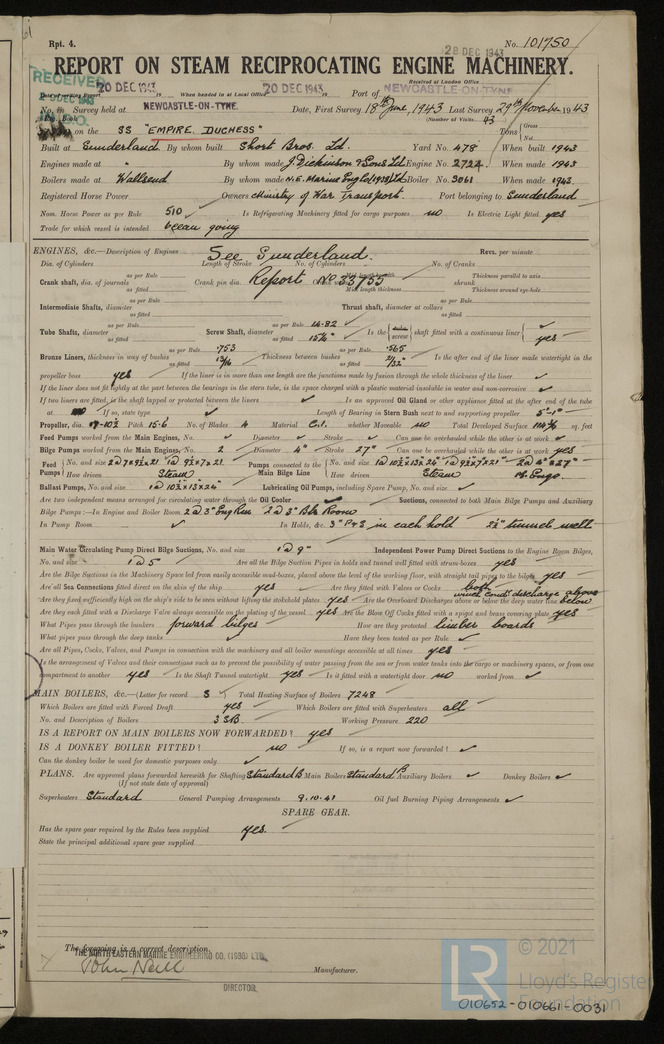 Rpt. 4. No. 101750
28 DEC 1943
REPORT ON STEAM RECIPROCATING ENGINE MACHINERY.
RECEIVED 20 DEC 1943 When handed in at Local Office 20 DEC 1943 Port of NEWCASTLE-ON-TYNE
Received at London Office
No. in Survey held at NEWCASTLE-ON-TYNE. Date, First Survey 18th June, 1943 Last Survey 29th November 1943
(Number of Visits 43
on the SS "EMPIRE DUCHESS" Tons { Gross Net
Built at Sunderland By whom built Short Bros. Ld. Yard No. 478 When built 1943
Engines made at " By whom made J. Dickinson & Sons Ld Engine No. 2724 When made 1943
Boilers made at Wallsend By whom made N.E. Marine Eng Co (1938) Ld Boiler No. 3061 When made 1943
Registered Horse Power Owners Ministry of War Transport. Port belonging to Sunderland
Nom. Horse Power as per Rule 510 Is Refrigerating Machinery fitted for cargo purposes no Is Electric Light fitted yes
Trade for which vessel is intended Ocean going
ENGINES, &c.—Description of Engines See Sunderland. Revs. per minute
Dia. of Cylinders Length of Stroke No. of Cylinders No. of Cranks
Crank shaft, dia. of journals as per Rule as fitted Crank pin dia. Report No 33755 Mid. length thickness shrunk Thickness parallel to axis Thickness around eye-hole
Intermediate Shafts, diameter as per Rule as fitted Thrust shaft, diameter at collars as per Rule as fitted
Tube Shafts, diameter as per Rule as fitted Screw Shaft, diameter as per Rule 14.82 as fitted 15¼" Is the { tube screw } shaft fitted with a continuous liner { yes
Bronze Liners, thickness in way of bushes as per Rule .753 as fitted 13/16 Thickness between bushes as per Rule .565 as fitted 21/32" Is the after end of the liner made watertight in the
propeller boss yes If the liner is in more than one length are the junctions made by fusion through the whole thickness of the liner ✓
If the liner does not fit tightly at the part between the bearings in the stern tube, is the space charged with a plastic material insoluble in water and non-corrosive ✓
If two liners are fitted, is the shaft lapped or protected between the liners ✓ Is an approved Oil Gland or other appliance fitted at the after end of the tube
at no If so, state type ✓ Length of Bearing in Stern Bush next to and supporting propeller 5'-1"
Propeller, dia. 17-10½ Pitch 15.6 No. of Blades 4 Material C.I. whether Moveable no Total Developed Surface sq. feet
Feed Pumps worked from the Main Engines, No. ✓ Diameter ✓ Stroke ✓ Can one be overhauled while the other is at work ✓
Bilge Pumps worked from the Main Engines, No. 2 Diameter 4" Stroke 27" Can one be overhauled while the other is at work yes
Feed Pumps { No. and size 2 @ 7x9½x21 1 @ 9½x7x21 How driven Steam Pumps connected to the Main Bilge Line { No. and size 1 @ 10½x13x24" 1 @ 9½x7x21" 2 @ 4"x27" How driven Steam M. Engs.
Ballast Pumps, No. and size 1 @ 10½x13x24" Lubricating Oil Pumps, including Spare Pump, No. and size ✓
Are two independent means arranged for circulating water through the Oil Cooler ✓ Suctions, connected to both Main Bilge Pumps and Auxiliary
Bilge Pumps:—In Engine and Boiler Room 2 @ 3" Eng Rm 2 @ 3" Blr Room
In Pump Room ✓ In Holds, &c. 3" P&S in each hold 2½" tunnel well
Main Water Circulating Pump Direct Bilge Suctions, No. and size 1 @ 9" Independent Power Pump Direct Suctions to the Engine Room Bilges,
No. and size 1 @ 5 Are all the Bilge Suction Pipes in holds and tunnel well fitted with strum-boxes yes
Are the Bilge Suctions in the Machinery Space led from easily accessible mud-boxes, placed above the level of the working floor, with straight tail pipes to the bilges yes
Are all Sea Connections fitted direct on the skin of the ship yes Are they fitted with Valves or Cocks both
Are they fixed sufficiently high on the ship's side to be seen without lifting the stokehold plates yes Are the Overboard Discharges above or below the deep water line main cond. discharge above below
Are they each fitted with a Discharge Valve always accessible on the plating of the vessel yes Are the Blow Off Cocks fitted with a spigot and brass covering plate yes
What Pipes pass through the bunkers forward bilges How are they protected limber boards
What pipes pass through the deep tanks ✓ Have they been tested as per Rule ✓
Are all Pipes, Cocks, Valves, and Pumps in connection with the machinery and all boiler mountings accessible at all times yes
Is the arrangement of Valves and their connections such as to prevent the possibility of water passing from the sea or from water tanks into the cargo or machinery spaces, or from one
compartment to another yes Is the Shaft Tunnel watertight yes Is it fitted with a watertight door no worked from ✓
MAIN BOILERS, &c.—(Letter for record S ✓ Total Heating Surface of Boilers 7248
Which Boilers are fitted with Forced Draft yes Which Boilers are fitted with Superheaters all
No. and Description of Boilers 3 SB Working Pressure 220
IS A REPORT ON MAIN BOILERS NOW FORWARDED? yes
IS A DONKEY BOILER FITTED? no If so, is a report now forwarded? ✓
Can the donkey boiler be used for domestic purposes only ✓
PLANS. Are approved plans forwarded herewith for Shafting Standard B Main Boilers Standard B Auxiliary Boilers ✓ Donkey Boilers ✓
(If not state date of approval)
Superheaters Standard General Pumping Arrangements 9.10.41 Oil fuel Burning Piping Arrangements ✓
SPARE GEAR.
Has the spare gear required by the Rules been supplied yes.
State the principal additional spare gear supplied
The foregoing is a correct description.
THE NORTH EASTERN MARINE ENGINEERING CO. (1938) LTD.
John Neill Manufacturer.
DIRECTOR.
LR © 2021
Lloyd's Register
Foundation
010652-010661-0031